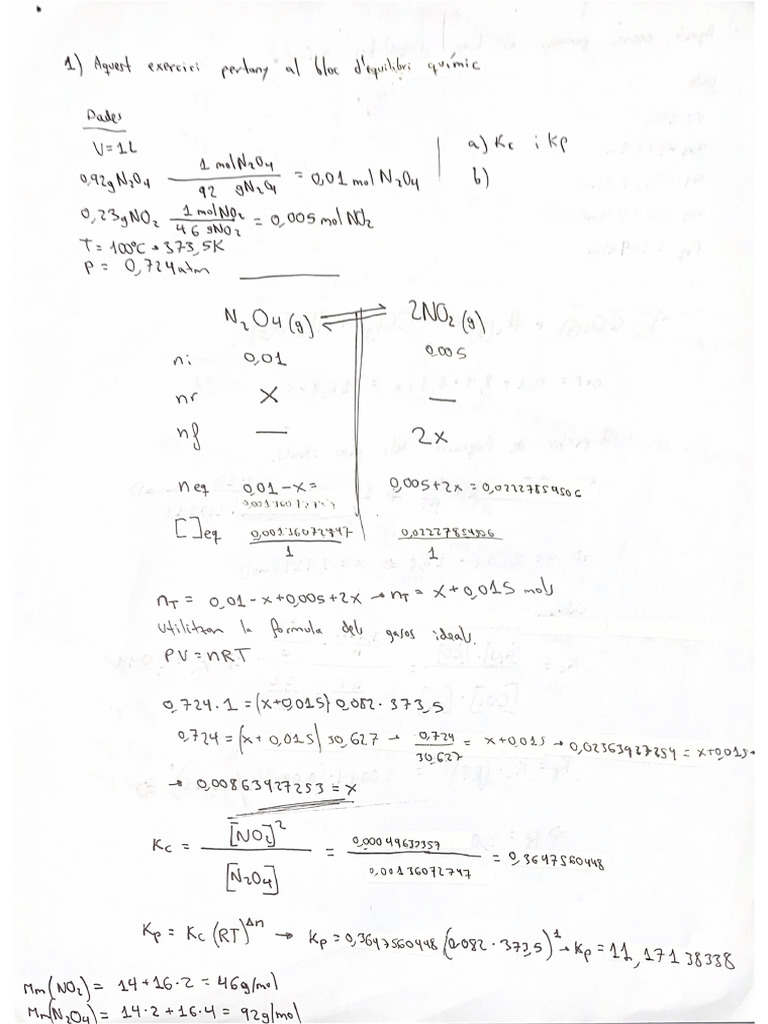 1) Aquest exercici pertany al bloc d'equilibri químic
Dades
V=1L
0,92g N2O4 1 mol N2O4 / 92 g N2O4 = 0,01 mol N2O4
0,23g NO2 1 mol NO2 / 46 g NO2 = 0,005 mol NO2
T= 100ºC → 373,5K
P= 0,724 atm
a) Kc i Kp
b)
N2O4(g) ⇌ 2NO2(g)
ni 0,01 0,005
nr X —
nf — 2x
neq 0,01-x= 0,005+2x=0,02227854506
0,00136072747
[ ]eq 0,00136072747 / 1 0,02227854506 / 1
nT= 0,01-x+0,005+2x → nT= x+0,015 mols
utilitzem la formula dels gasos ideals.
PV=nRT
0,724·1=(x+0,015)0,082·373,5
0,724=(x+0,015)30,627 → 0,724 / 30,627 = x+0,015 → 0,02363927254 = x+0,015 →
→ 0,00863927253=x
Kc = [NO2]² / [N2O4] = 0,00049633357 / 0,00136072747 = 0,3647560448
Kp = Kc (RT)^Δn → Kp=0,3647560448 (0,082·373,5)^1 → Kp=11,17138338
Mm(NO2)= 14+16·2 = 46g/mol
Mm(N2O4)= 14·2+16·4= 92g/mol